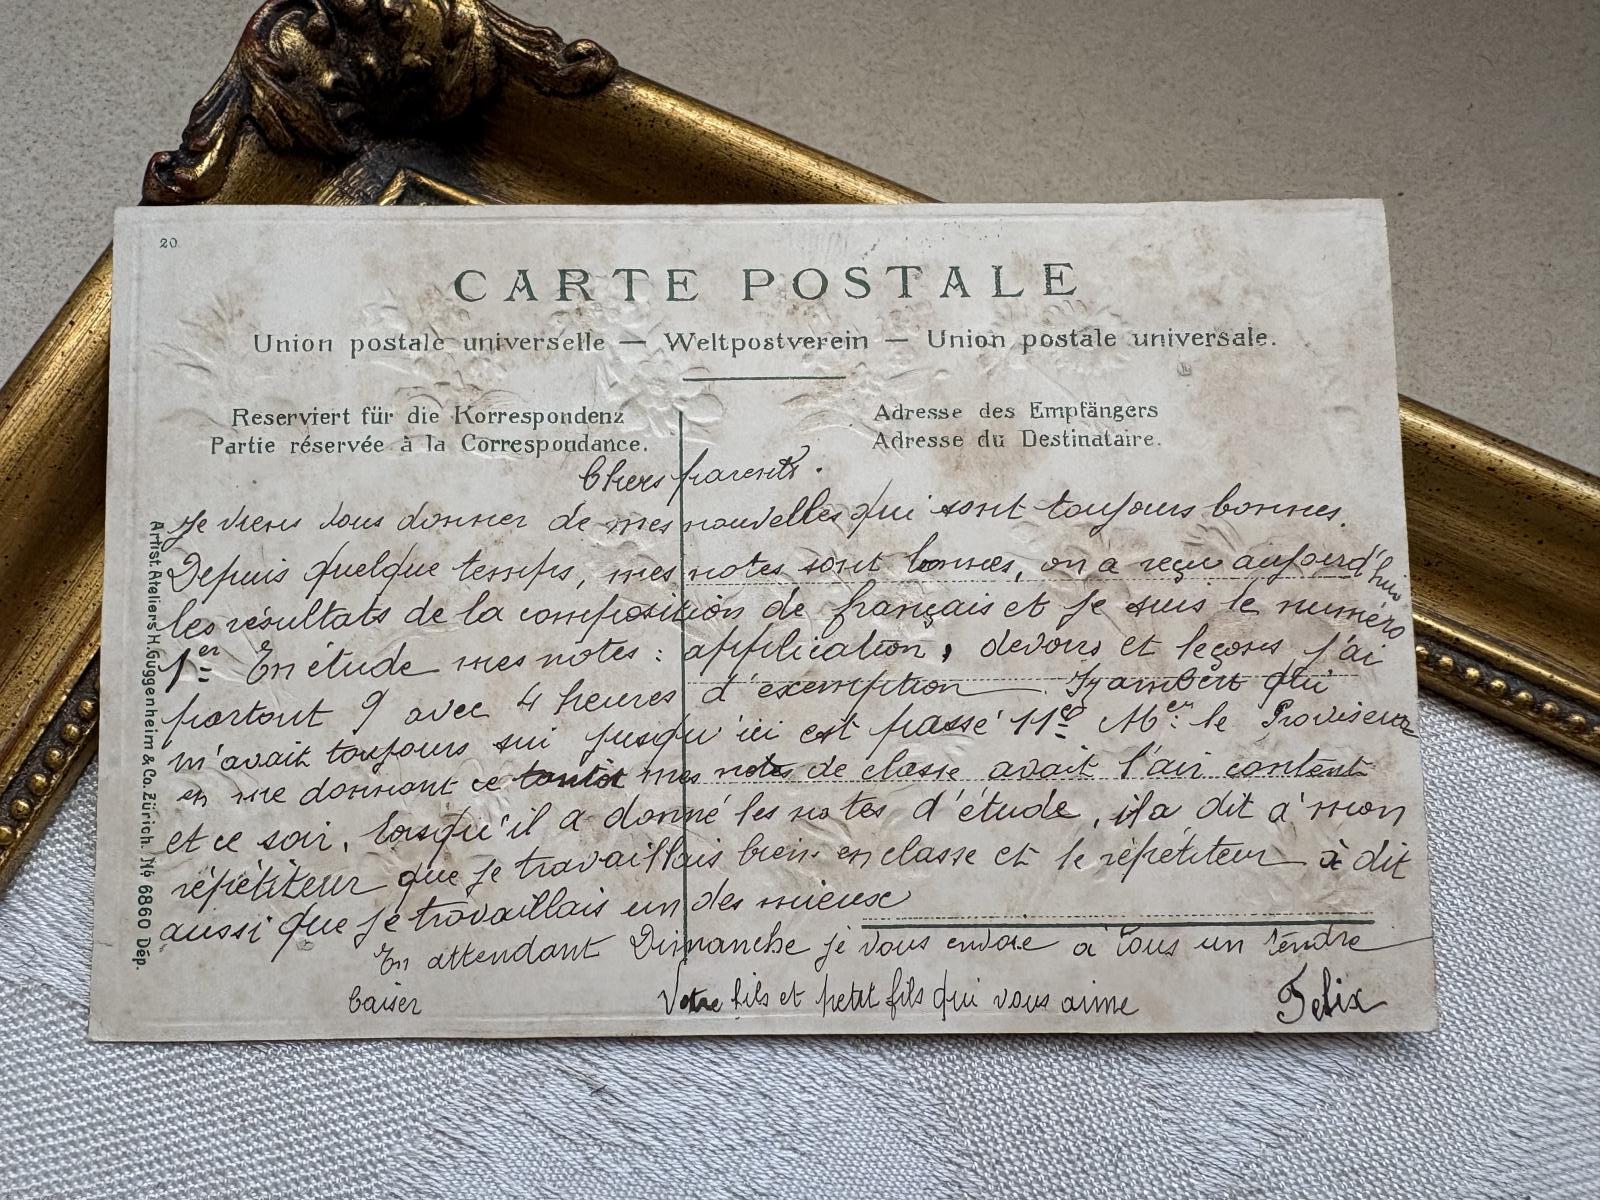 20
CARTE POSTALE
Union postale universelle — Weltpostverein — Union postale universale.
Reserviert für die Korrespondenz
Partie réservée à la Correspondance.
Adresse des Empfängers
Adresse du Destinataire.
Chers parents.
Je viens vous donner de mes nouvelles qui sont toujours bonnes.
Depuis quelque temps, mes notes sont bonnes, on a reçu aujourd'hui
les résultats de la composition de français et je suis le numéro
1er En étude mes notes : application, devoirs et leçons j'ai
partout 9 avec 4 heures d'exemption qui
m'avait toujours sui jusqu'ici est passé 11e Mer le Proviseur
en me donnant ce tantôt mes notes de classe avait l'air content
et ce soir, lorsqu'il a donné les notes d'étude, il a dit à mon
répétiteur que je travaillais bien en classe et le répétiteur à dit
aussi que je travaillais un des mieux
En attendant Dimanche je vous envoie à tous un tendre
baiser Votre fils et petit fils qui vous aime Felix
Artist. Ateliers H. Guggenheim & Co. Zürich. No 6860 Dép.